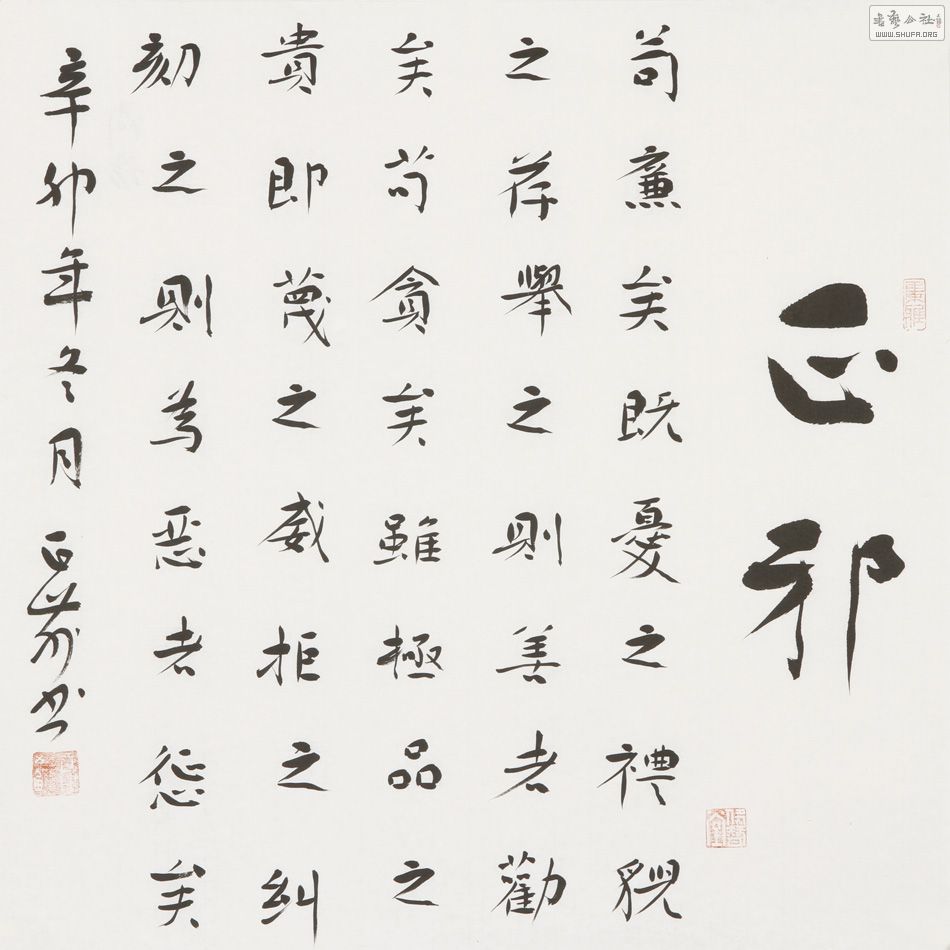 正邪
苟廉矣既憂之禮貌
之荐舉之則善者勸
矣苟貪矣雖極品之
貴即蔑之威拒之糾
刻之則為惡者懲矣
辛卯年冬月书
書藝公社
WWW.SHUFA.ORG